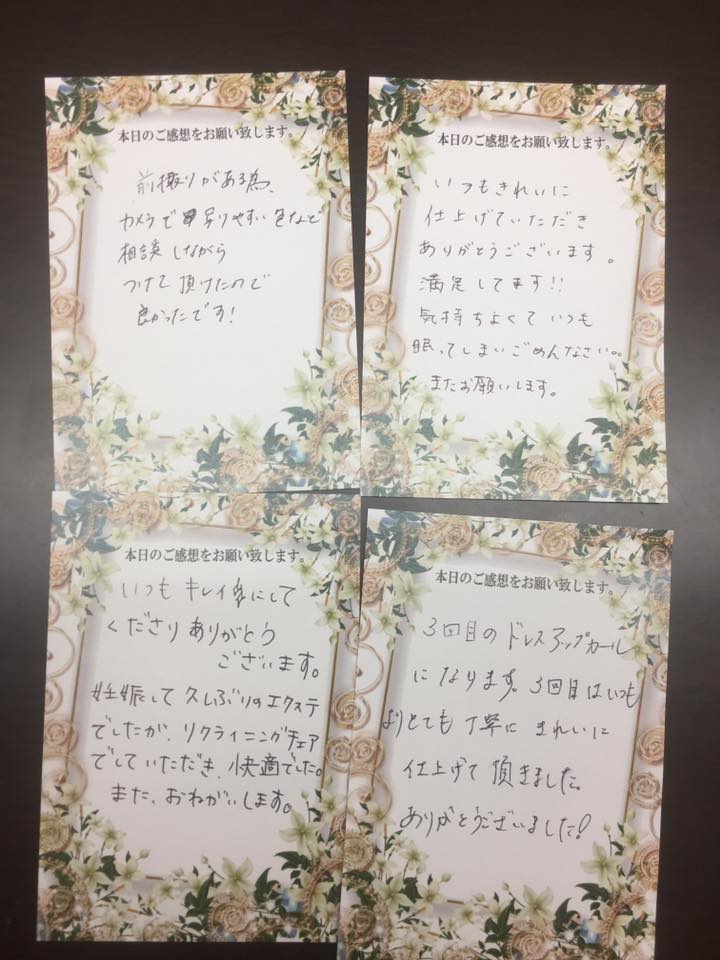 本日のご感想をお願い致します。
前撮りがある為、
カメラで写りやすい色など
相談しながら
つけて頂けたので
良かったです!
本日のご感想をお願い致します。
いつもきれいに
仕上げていただき
ありがとうございます。
満足してます!!
気持ちよくていつも
眠ってしまいごめんなさい。。
またお願いします。
本日のご感想をお願い致します。
いつもキレイにして
くださりありがとう
ございます。
妊娠して久しぶりのエクステ
でしたが、リクライニングチェア
でしていただき、快適でした。
また、おねがいします。
本日のご感想をお願い致します。
3回目のドレスアップカール
になります。3回目はいつも
よりとても丁寧にきれいに
仕上げて頂きました。
ありがとうございました!